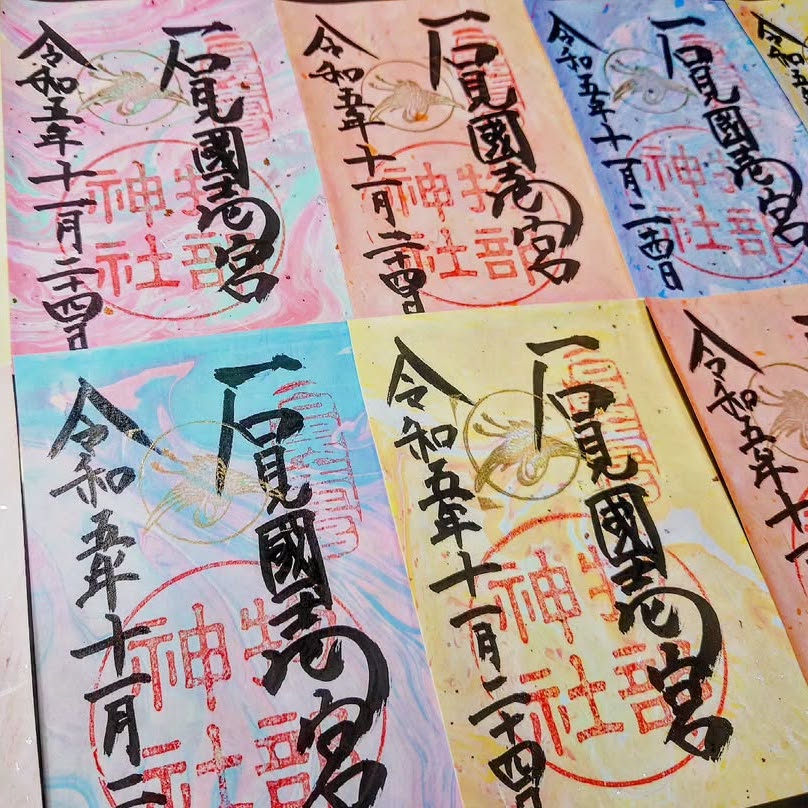 石見國壱宮
物部
神社
令和五年十一月二十四日
石見國壱宮
物部
神社
令和五年十一月二十四日
石見國壱宮
物部
神社
令和五年十一月二十四日
石見國壱宮
物部
神社
令和五年十一月二
石見國壱宮
物部
神社
令和五年十一月二十四日
令和五年十